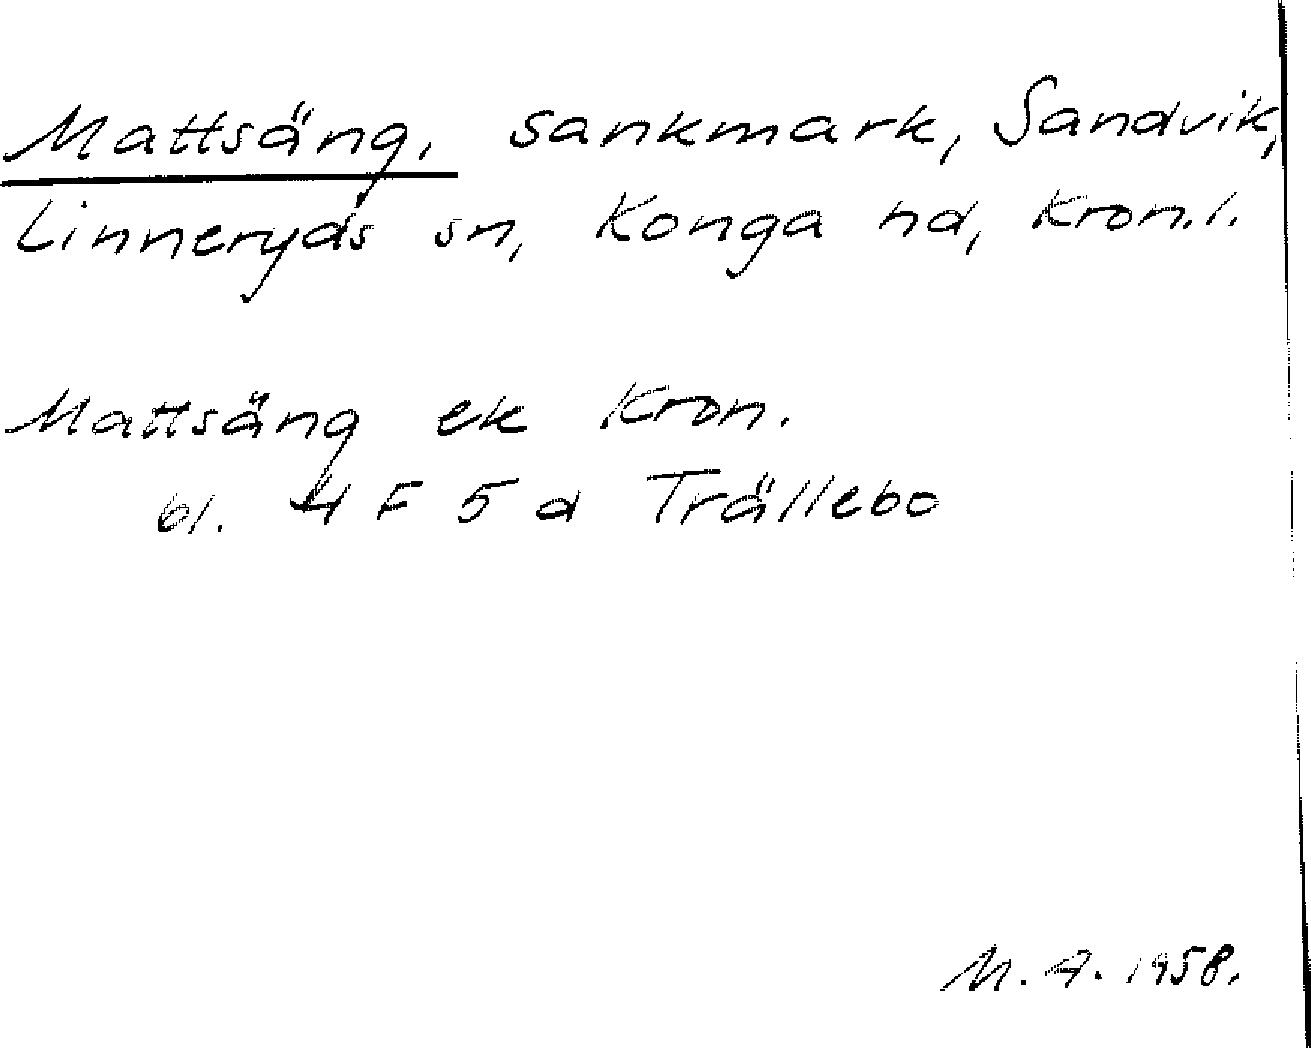 Mattsäng, sankmark, Sandvik,
Linneryds sn, Konga hd, Kron.l.
Mattsäng ek Kron.
bl. 4 F 5 d Trällebo
M. A. 1958.